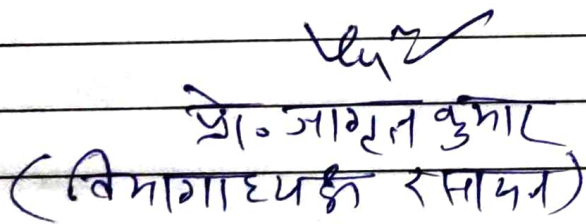 प्रो० जागृत कुमार
(विभागाध्यक्ष रसायन)